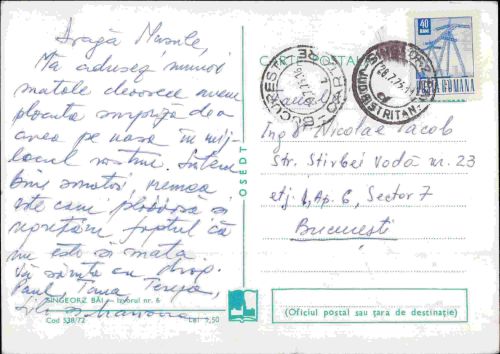 Dragă Nusule,
Vă aducem numai
noutăți deoarece avem
plăcuta surpriză de a
avea pe nașa în mij-
locul nostru. Suntem
bine sănătoși, vremea
este cam ploioasă și
regretăm faptul că
nu ești și
Vă sărută cu drag,
Paul, Toma, Tereza,
Lili
SÎNGEORZ BĂI – Izvorul nr. 6
Cod 538/72
Lei 1,50
OSEDT
CARTE POSTALĂ
40 BANI
POSTA ROMANA
BUCUREȘTI
BISTRIȚA
Ing. Nicolae Iacob
Str. Știrbei Vodă nr. 23
etj. 1, Ap. 6, Sector 7
București
(Oficiul poștal sau țara de destinație)